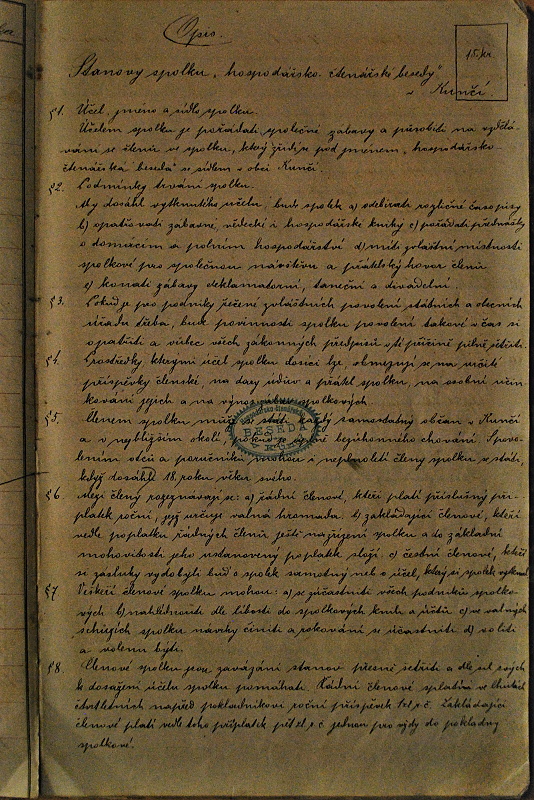 Opis.
15 kr.
Stanovy spolku „hospodářsko-čtenářské besedy“
v Kunčí.
§ 1. Účel, jméno a sídlo spolku.
Účelem spolku je pořádati společné zábavy a působiti na vzdělá-
vání se členů ve spolku, který zřídí se pod jménem „hospodářsko-
čtenářská beseda“ se sídlem v obci Kunčí.
§ 2. Podmínky trvání spolku.
Aby dosáhl vytknutého účelu, bude spolek a) odebírati rozličné časopisy
b) opatřovati zábavné, vědecké i hospodářské knihy c) pořádati přednášky
o domácím a polním hospodářství d) míti zvláštní místnosti
spolkové pro společnou návštěvu a přátelský hovor členů
e) konati zábavy deklamatorní, taneční a divadelní.
§ 3. Pokud je pro podniky řečené zvláštních povolení státních a obecních
úřadů třeba, bude povinností spolku povolení takové v čas si
opatřiti a vůbec všech zákonných předpisů v té příčině pilně šetřiti.
§ 4. Prostředky kterými účel spolku docíliti lze, obmezují se na určité
příspěvky členské, na dary údův a přátel spolku, na osobní účin-
kování jejich a na výnos spolkových.
§ 5. Členem spolku může se státi každý samostatný občan v Kunčí
a v nejbližším okolí, pokud je úplně bezúhonného chování. S povo-
lením otců a poručníků mohou i nepnoletí členy spolku se státi,
když dosáhli 18. roku věku svého.
BESEDA
§ 6. Mezi členy rozeznávají se: a) řádní členové, kteří platí příslušný pří-
platek roční, jejž určuje valná hromada. b) zakládající členové, kteří
vedle poplatku řádných členů ještě na zřízení spolku a do základní
mohovitosti jeho ustanovený poplatek složí. c) čestní členové, kteří
si zásluhy vydobyli buď o spolek samotný neb o účel, který si spolek vytknul
§ 7. Veškeří členové spolku mohou: a) se zúčastniti všech podniků spolko-
vých b) nahlédnouti dle libosti do spolkových knih a účtů c) ve valných
schůzích spolku návrhy činiti a rokování se účastniti d) voliti
a voleni býti.
§ 8. Členové spolku jsou zavázáni stanov přesně šetřiti a dle sil svých
k dosažení účelu spolku pomáhati. Řádní členové splatí ve lhůtách
čtvrtletních napřed pokladníkovi roční příspěvek 1 zl. r. č. Zakládající
členové platí vedle toho příplatek pět zl. r. č. jednou pro vždy do pokladny
spolkové.